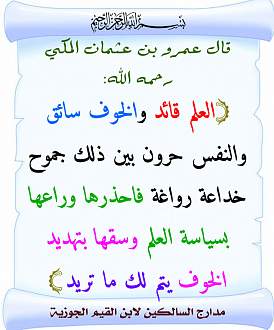 بسم الله الرحمن الرحيم
قال عمرو بن عثمان المكي
رحمه الله:
(العلم قائد والخوف سائق
والنفس حرون بين ذلك جموح
خداعة رواغة فاحذرها وراعها
بسياسة العلم وسقها بتهديد
الخوف يتم لك ما تريد)
مدارج السالكين لابن القيم الجوزية